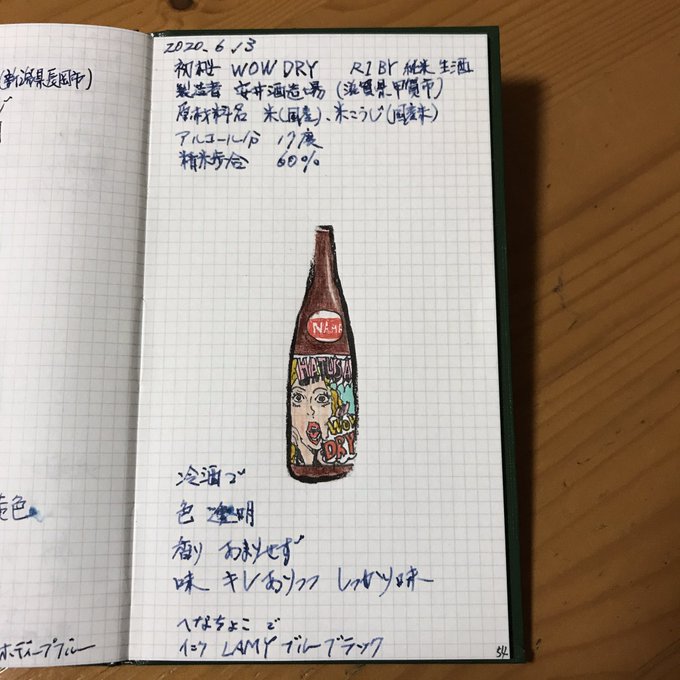 (新潟県長岡市)
2020.6.13
初桜 WOW DRY R1BY 純米 生酒
製造者 安井酒造場 (滋賀県甲賀市)
原材料名 米(国産)、米こうじ(国産米)
アルコール分 17度
精米歩合 60%
NAMA
HATUSA
WOW
DRY
冷酒で
色 透明
香り あまりせず
味 キレありつつ しっかり味
へなちょこ で
インク LAMY ブルーブラック
色
ディープブルー
54